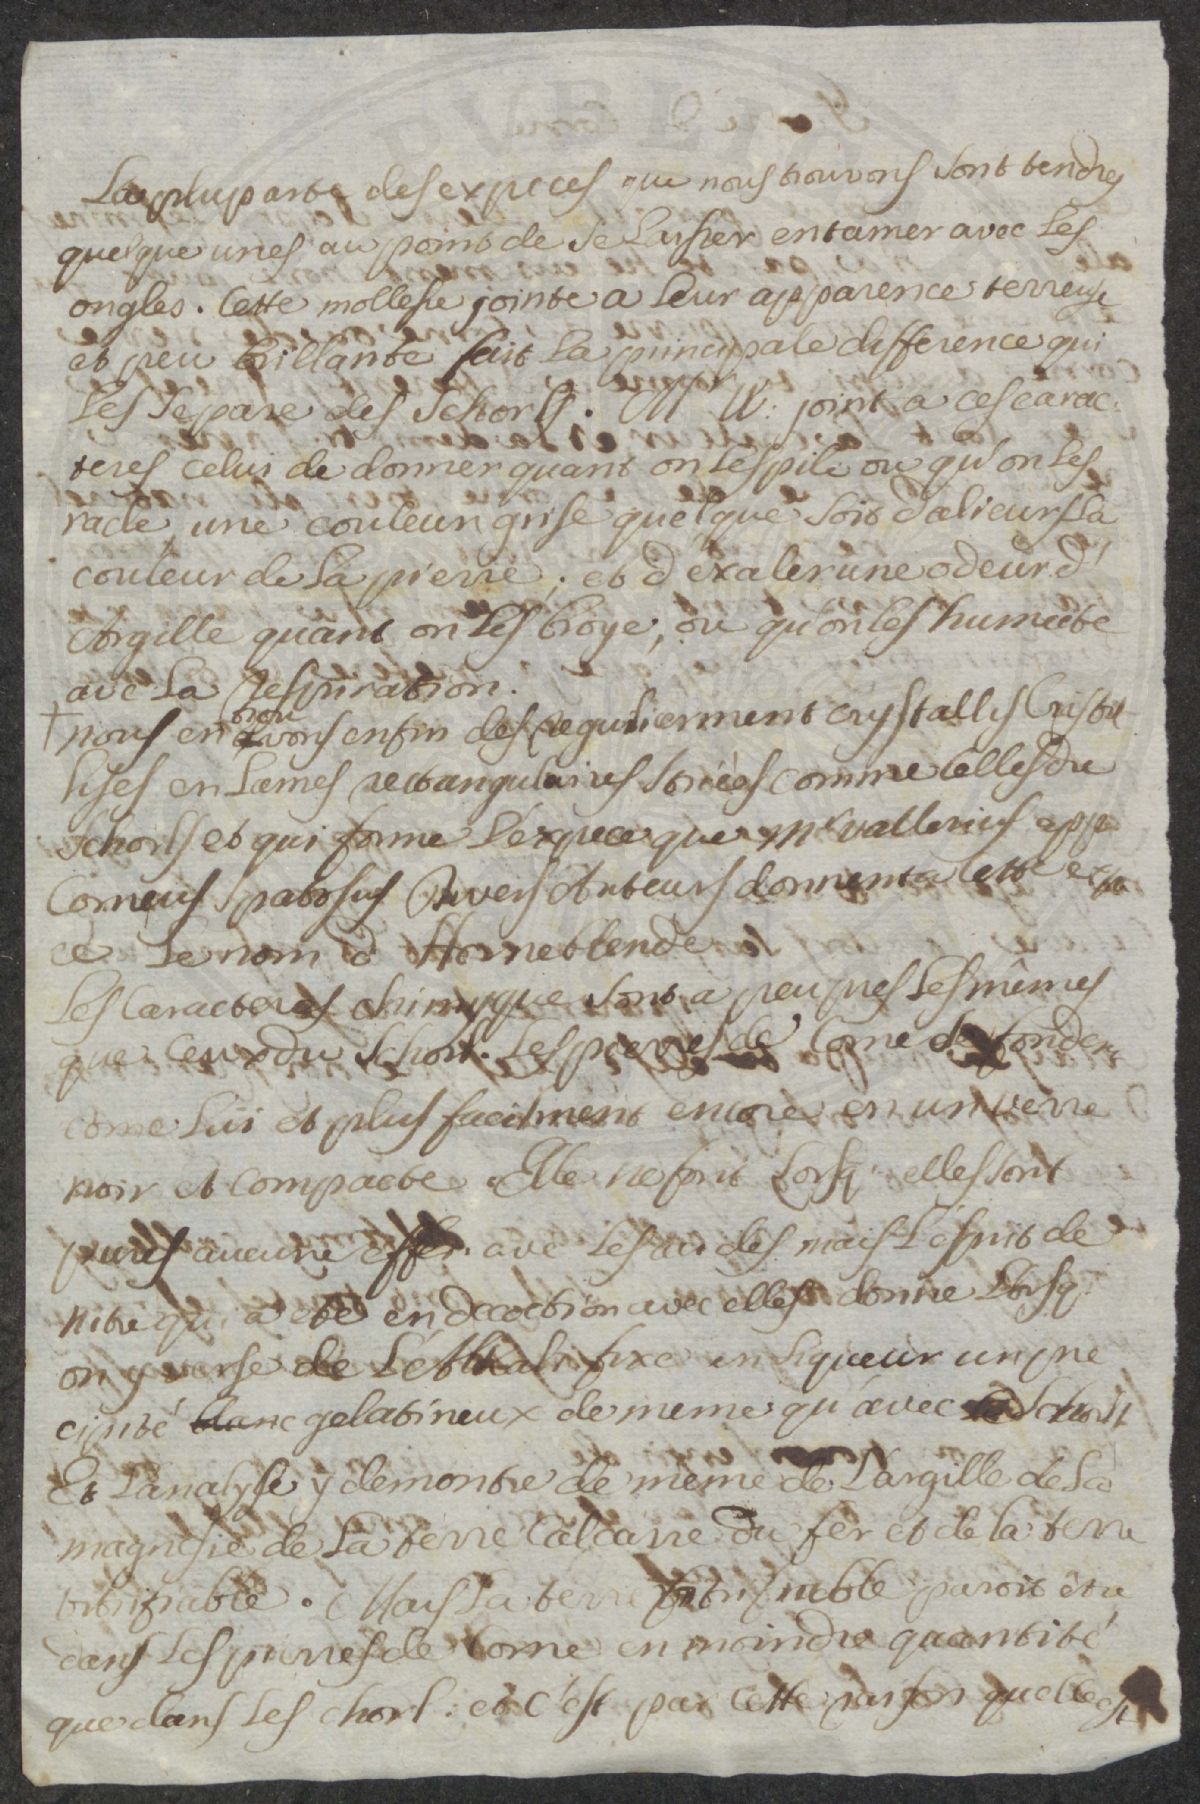 La pluparte des expeces que nous trouvons sont tendres
quelque unes au point de se laisser entamer avec les
ongles. Cette mollesse jointe a leur apparence terreuse
et peu brillante fait la principale difference qui
les separe des Schorls. Mr W: joint a ces carac
teres celui de donner quant on les pile ou qu'on les
racle une couleur grise quelque soit d'alieurs la
couleur de la pierre; et d exaler une odeur d'
Argille quant on les broye, ou qu'on les humecte
avec la respiration.
+ nous en trouvons enfin des regulierement crystallis Cristal
lisés en Lames rectangulaires striées comme celles du
Schorls et qui forme l'expece que Mr Vallerius app
Corneus spatosus Divers Auteurs donnent a cette expe
ce le nom d Horneblende
Les Caracteres chimyque sont a peu pres les mêmes
que ceux du Schorl. Les pierres de Corne se fondent
come lui et plus facilment encore en un verre
noir et compacte. Elle ne font Lorsq' elles sont
pures aucune effer. avec les acides mais l'esprit de
nitre qui a eté en decoction avec elles donne Lorsq'
on y verse de l'alkali fixe en liqueur un pre
cipité blanc gelatineux de meme qu'avec le Schorl
Et l'analyse y demontre de même de l'argille de la
magnesie de la terre Calcaire du fer et de la terre
vitrifiable. Mais la terre vitrifiable paroit être
dans les pierres de Corne en moindre quantité
que dans les chorl: et c'est par cette raison quelle est